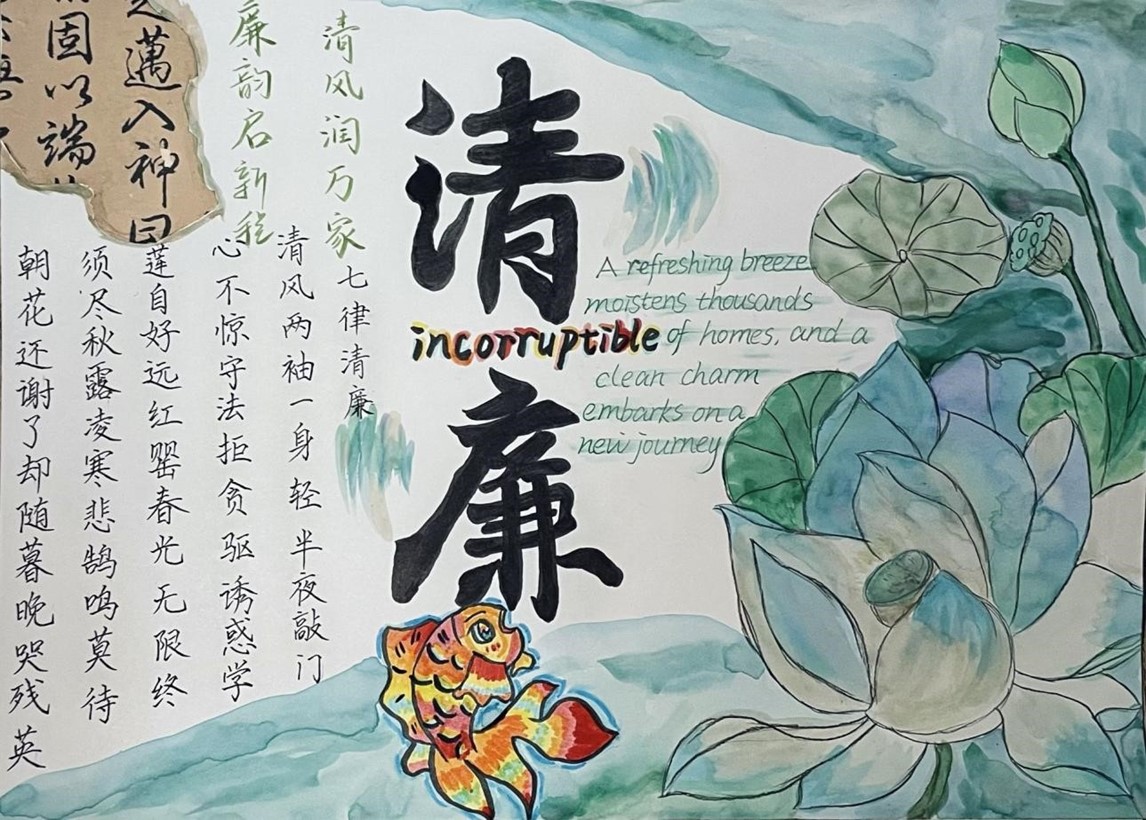 清廉
incorruptible
A refreshing breeze
moistens thousands
of homes, and a
clean charm
embarks on a
new journey
清风润万家
廉韵启新程
七律清廉
清风两袖一身轻半夜敲门
心不惊守法拒贪驱诱惑学
莲自好远红罂春光无限终
须尽秋露凌寒悲鹄鸣莫待
朝花还谢了却随暮晚哭残英
邁入神曰
固以端